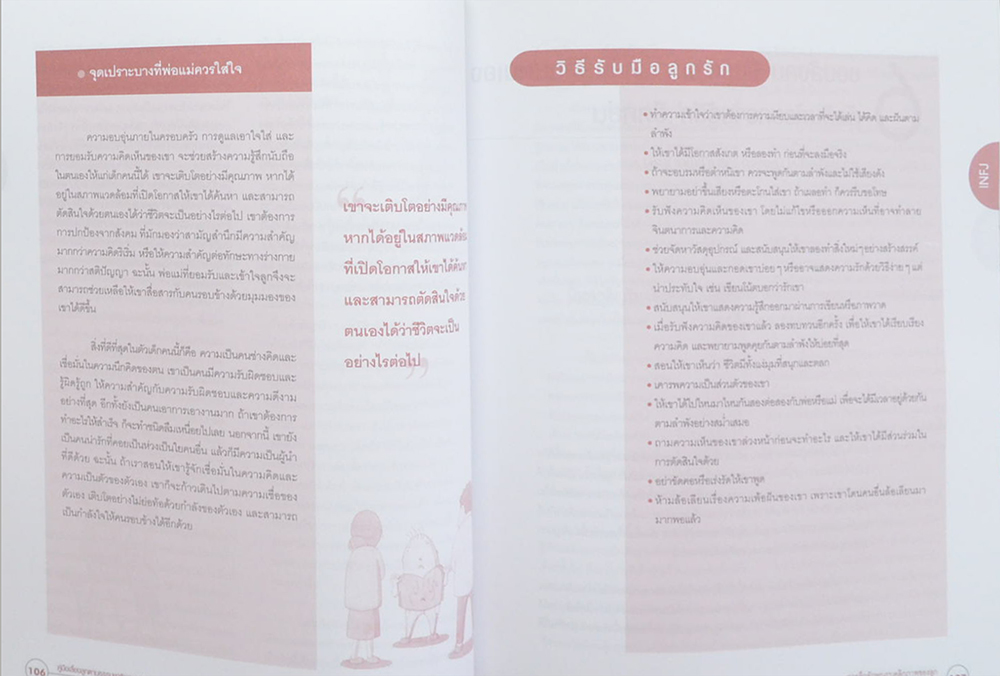 จุดเปราะบางที่พ่อแม่ควรใส่ใจ
ความอบอุ่นภายในครอบครัว การดูแลเอาใจใส่ และ
การยอมรับความคิดเห็นของเขา จะช่วยสร้างความรู้สึกนับถือ
ในตนเองให้แก่เด็กคนนี้ได้ เขาจะเติบโตอย่างมีคุณภาพ หากได้
อยู่ในสภาพแวดล้อมที่เปิดโอกาสให้เขาได้ค้นหา และสามารถ
ตัดสินใจด้วยตนเองได้ว่าชีวิตจะเป็นอย่างไรต่อไป เขาต้องการ
การปกป้องจากสังคม ที่มักมองว่าสามัญสำนึกมีความสำคัญ
มากกว่าความคิดริเริ่ม หรือให้ความสำคัญต่อทักษะทางร่างกาย
มากกว่าสติปัญญา ฉะนั้น พ่อแม่ที่ยอมรับและเข้าใจลูกจึงจะ
สามารถช่วยเหลือให้เขาสื่อสารกับคนรอบข้างด้วยมุมมองของ
เขาได้ดีขึ้น
สิ่งที่ดีที่สุดในตัวเด็กคนนี้ก็คือ ความเป็นคนช่างคิดและ
เชื่อมั่นในความนึกคิดของตน เขาเป็นคนมีความรับผิดชอบและ
รู้ผิดรู้ถูก ให้ความสำคัญกับความรับผิดชอบและความดีงาม
อย่างที่สุด อีกทั้งยังเป็นคนเอาการเอางานมาก ถ้าเขาต้องการ
ทำอะไรให้สำเร็จ ก็จะทำชนิดลืมเหนื่อยไปเลย นอกจากนี้ เขายัง
เป็นคนน่ารักที่คอยเป็นห่วงเป็นใยคนอื่น แล้วก็มีความเป็นผู้นำ
ที่ดีด้วย ฉะนั้น ถ้าเราสอนให้เขารู้จักเชื่อมั่นในความคิดและ
ความเป็นตัวของตัวเอง เขาก็จะก้าวเดินไปตามความเชื่อของ
ตัวเอง เติบโตอย่างไม่ย่อท้อด้วยกำลังของตัวเอง และสามารถ
เป็นกำลังใจให้คนรอบข้างได้อีกด้วย
“
เขาจะเติบโตอย่างมีคุณภาพ
หากได้อยู่ในสภาพแวดล้อม
ที่เปิดโอกาสให้เขาได้ค้นหา
และสามารถตัดสินใจด้วย
ตนเองได้ว่าชีวิตจะเป็น
อย่างไรต่อไป
”
106
วิธีรับมือลูกรัก
• ทำความเข้าใจว่าเขาต้องการความเงียบและเวลาที่จะได้เล่น ได้คิด และฝันตาม
ลำพัง
• ให้เขาได้มีโอกาสสังเกต หรือลองทำ ก่อนที่จะลงมือจริง
• ถ้าจะอบรมหรือตำหนิเขา ควรจะพูดกันตามลำพังและไม่ใช้เสียงดัง
• พยายามอย่าขึ้นเสียงหรือตะโกนใส่เขา ถ้าเผลอทำ ก็ควรรีบขอโทษ
• รับฟังความคิดเห็นของเขา โดยไม่แก้ไขหรือออกความเห็นที่อาจทำลาย
จินตนาการและความคิด
• ช่วยจัดหาวัสดุอุปกรณ์ และสนับสนุนให้เขาลองทำสิ่งใหม่ๆ อย่างสร้างสรรค์
• ให้ความอบอุ่นและกอดเขาบ่อยๆ หรืออาจแสดงความรักด้วยวิธีง่ายๆ แต่
น่าประทับใจ เช่น เขียนโน้ตบอกว่ารักเขา
• สนับสนุนให้เขาแสดงความรู้สึกออกมาผ่านการเขียนหรือภาพวาด
• เมื่อรับฟังความคิดของเขาแล้ว ลองทบทวนอีกครั้ง เพื่อให้เขาได้เรียบเรียง
ความคิด และพยายามพูดคุยกันตามลำพังให้บ่อยที่สุด
• สอนให้เขาเห็นว่า ชีวิตมีทั้งแง่มุมที่สนุกและตลก
• เคารพความเป็นส่วนตัวของเขา
• ให้เขาได้ไปไหนมาไหนกันสองต่อสองกับพ่อหรือแม่ เพื่อจะได้มีเวลาอยู่ด้วยกัน
ตามลำพังอย่างสม่ำเสมอ
• ถามความเห็นของเขาล่วงหน้าก่อนจะทำอะไร และให้เขาได้มีส่วนร่วมใน
การตัดสินใจด้วย
• อย่าขัดคอหรือเร่งรัดให้เขาพูด
• ห้ามล้อเลียนเรื่องความเพ้อฝันของเขา เพราะเขาโดนคนอื่นล้อเลียนมา
มากพอแล้ว
INFJ